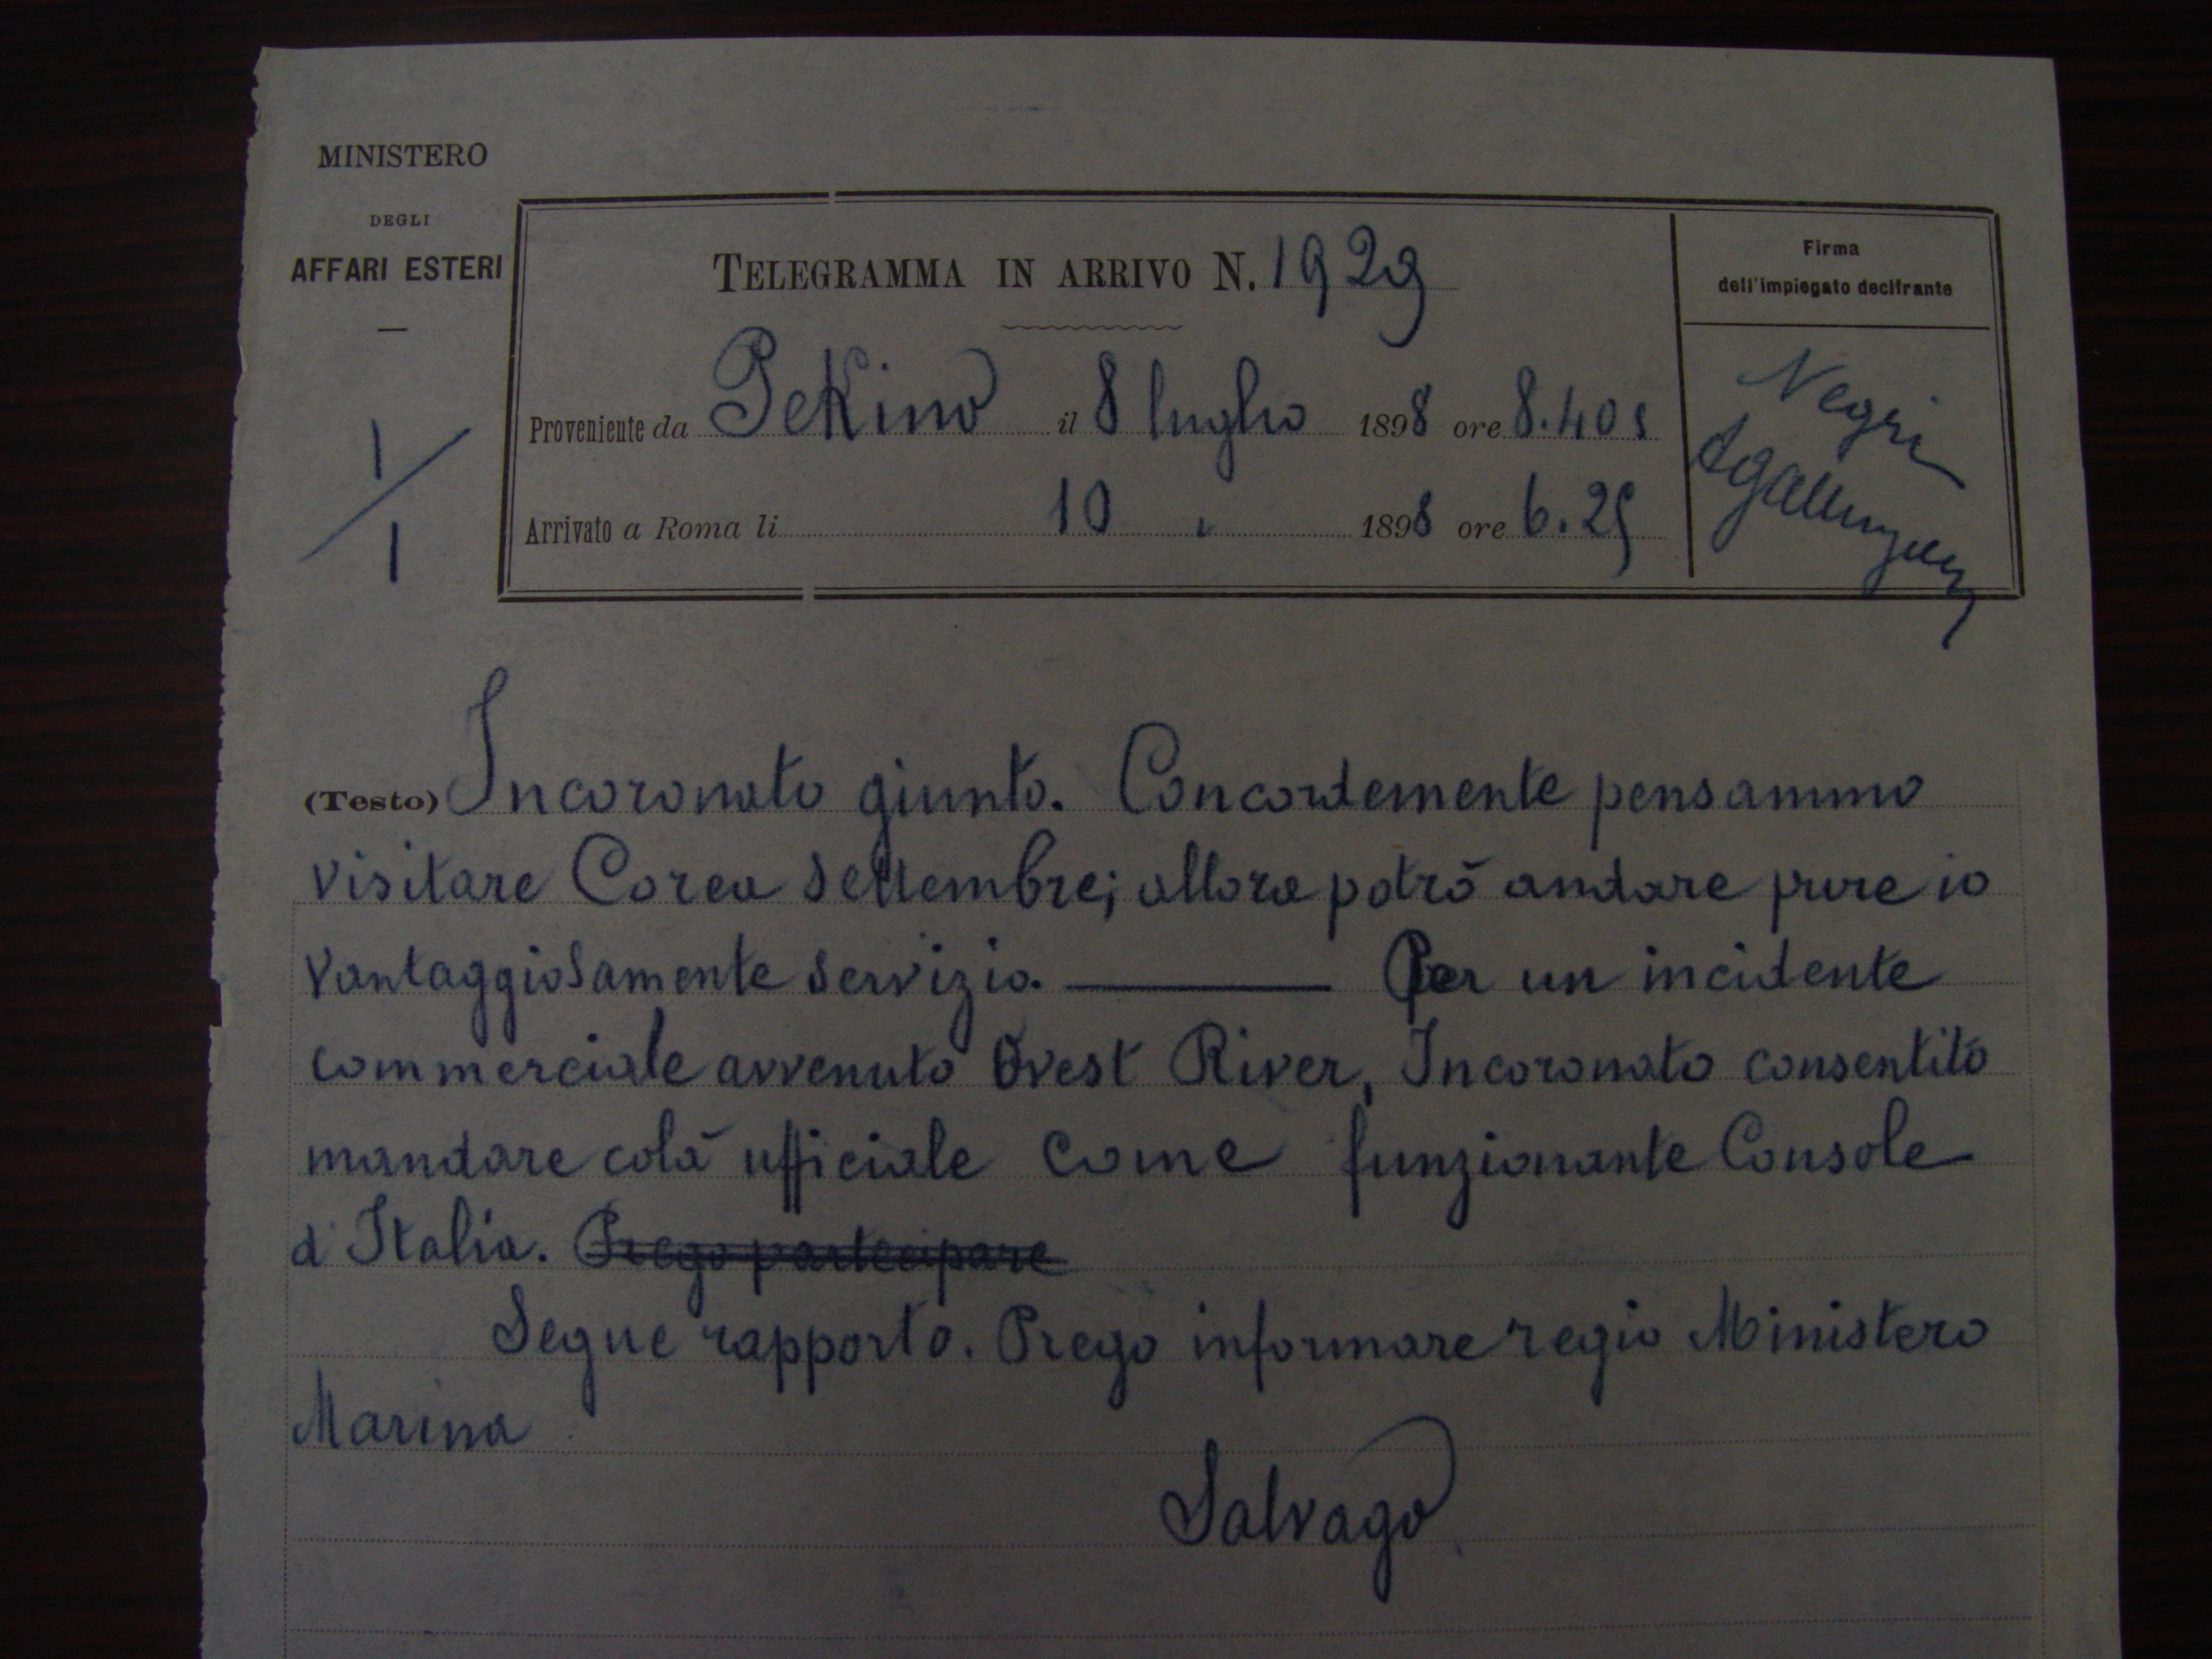 MINISTERO
DEGLI
AFFARI ESTERI
1/1
TELEGRAMMA IN ARRIVO N. 1929
Proveniente da Pekino il 8 luglio 1898 ore 8.40 s
Arrivato a Roma li 10 " 1898 ore 6.25
Firma
dell'impiegato decifrante
Negri
(Testo) Incoronato giunto. Concordemente pensammo
visitare Corea Settembre; allora potrò andare pure io
vantaggiosamente servizio. — Per un incidente
commerciale avvenuto Ovest River, Incoronato consentito
mandare colà ufficiale come funzionante Console
d'Italia. Prego partecipare
Segue rapporto. Prego informare regio Ministero
Marina
Salvago